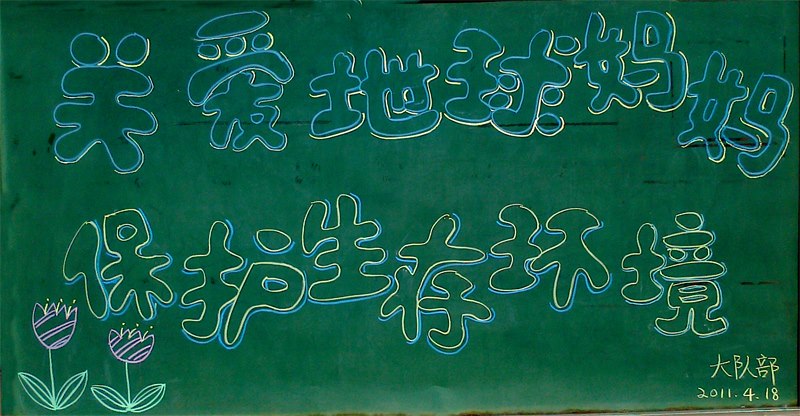 关爱地球妈妈
保护生存环境
大队部
2011.4.18